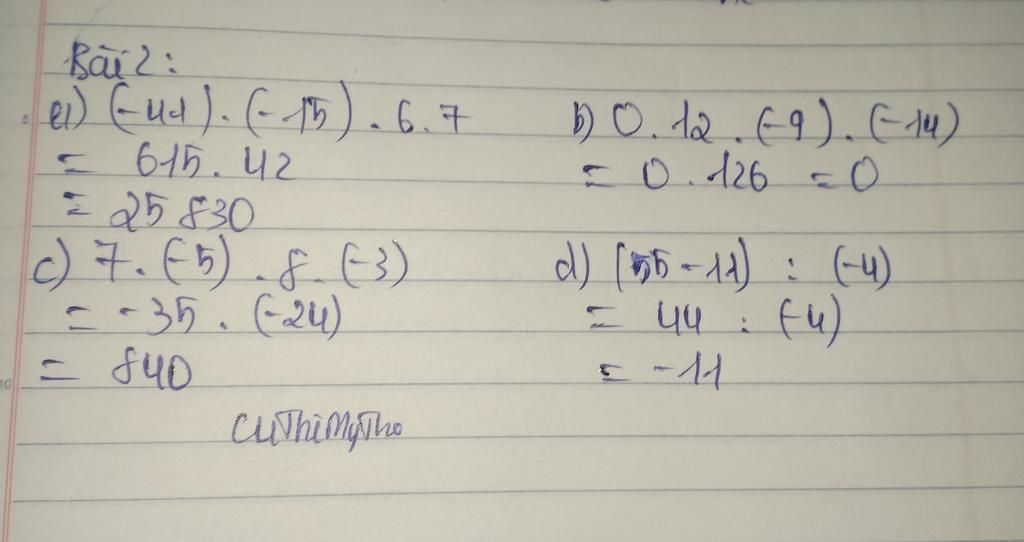 Bài 2:
a) (-41) . (-15) . 6 . 7
= 615 . 42
= 25 830
b) 0 . 12 . (-9) . (-14)
= 0 . 126 = 0
c) 7 . (-5) . 8 . (-3)
= -35 . (-24)
= 840
d) (55 - 11) : (-4)
= 44 : (-4)
= -11
CuThiMyTho